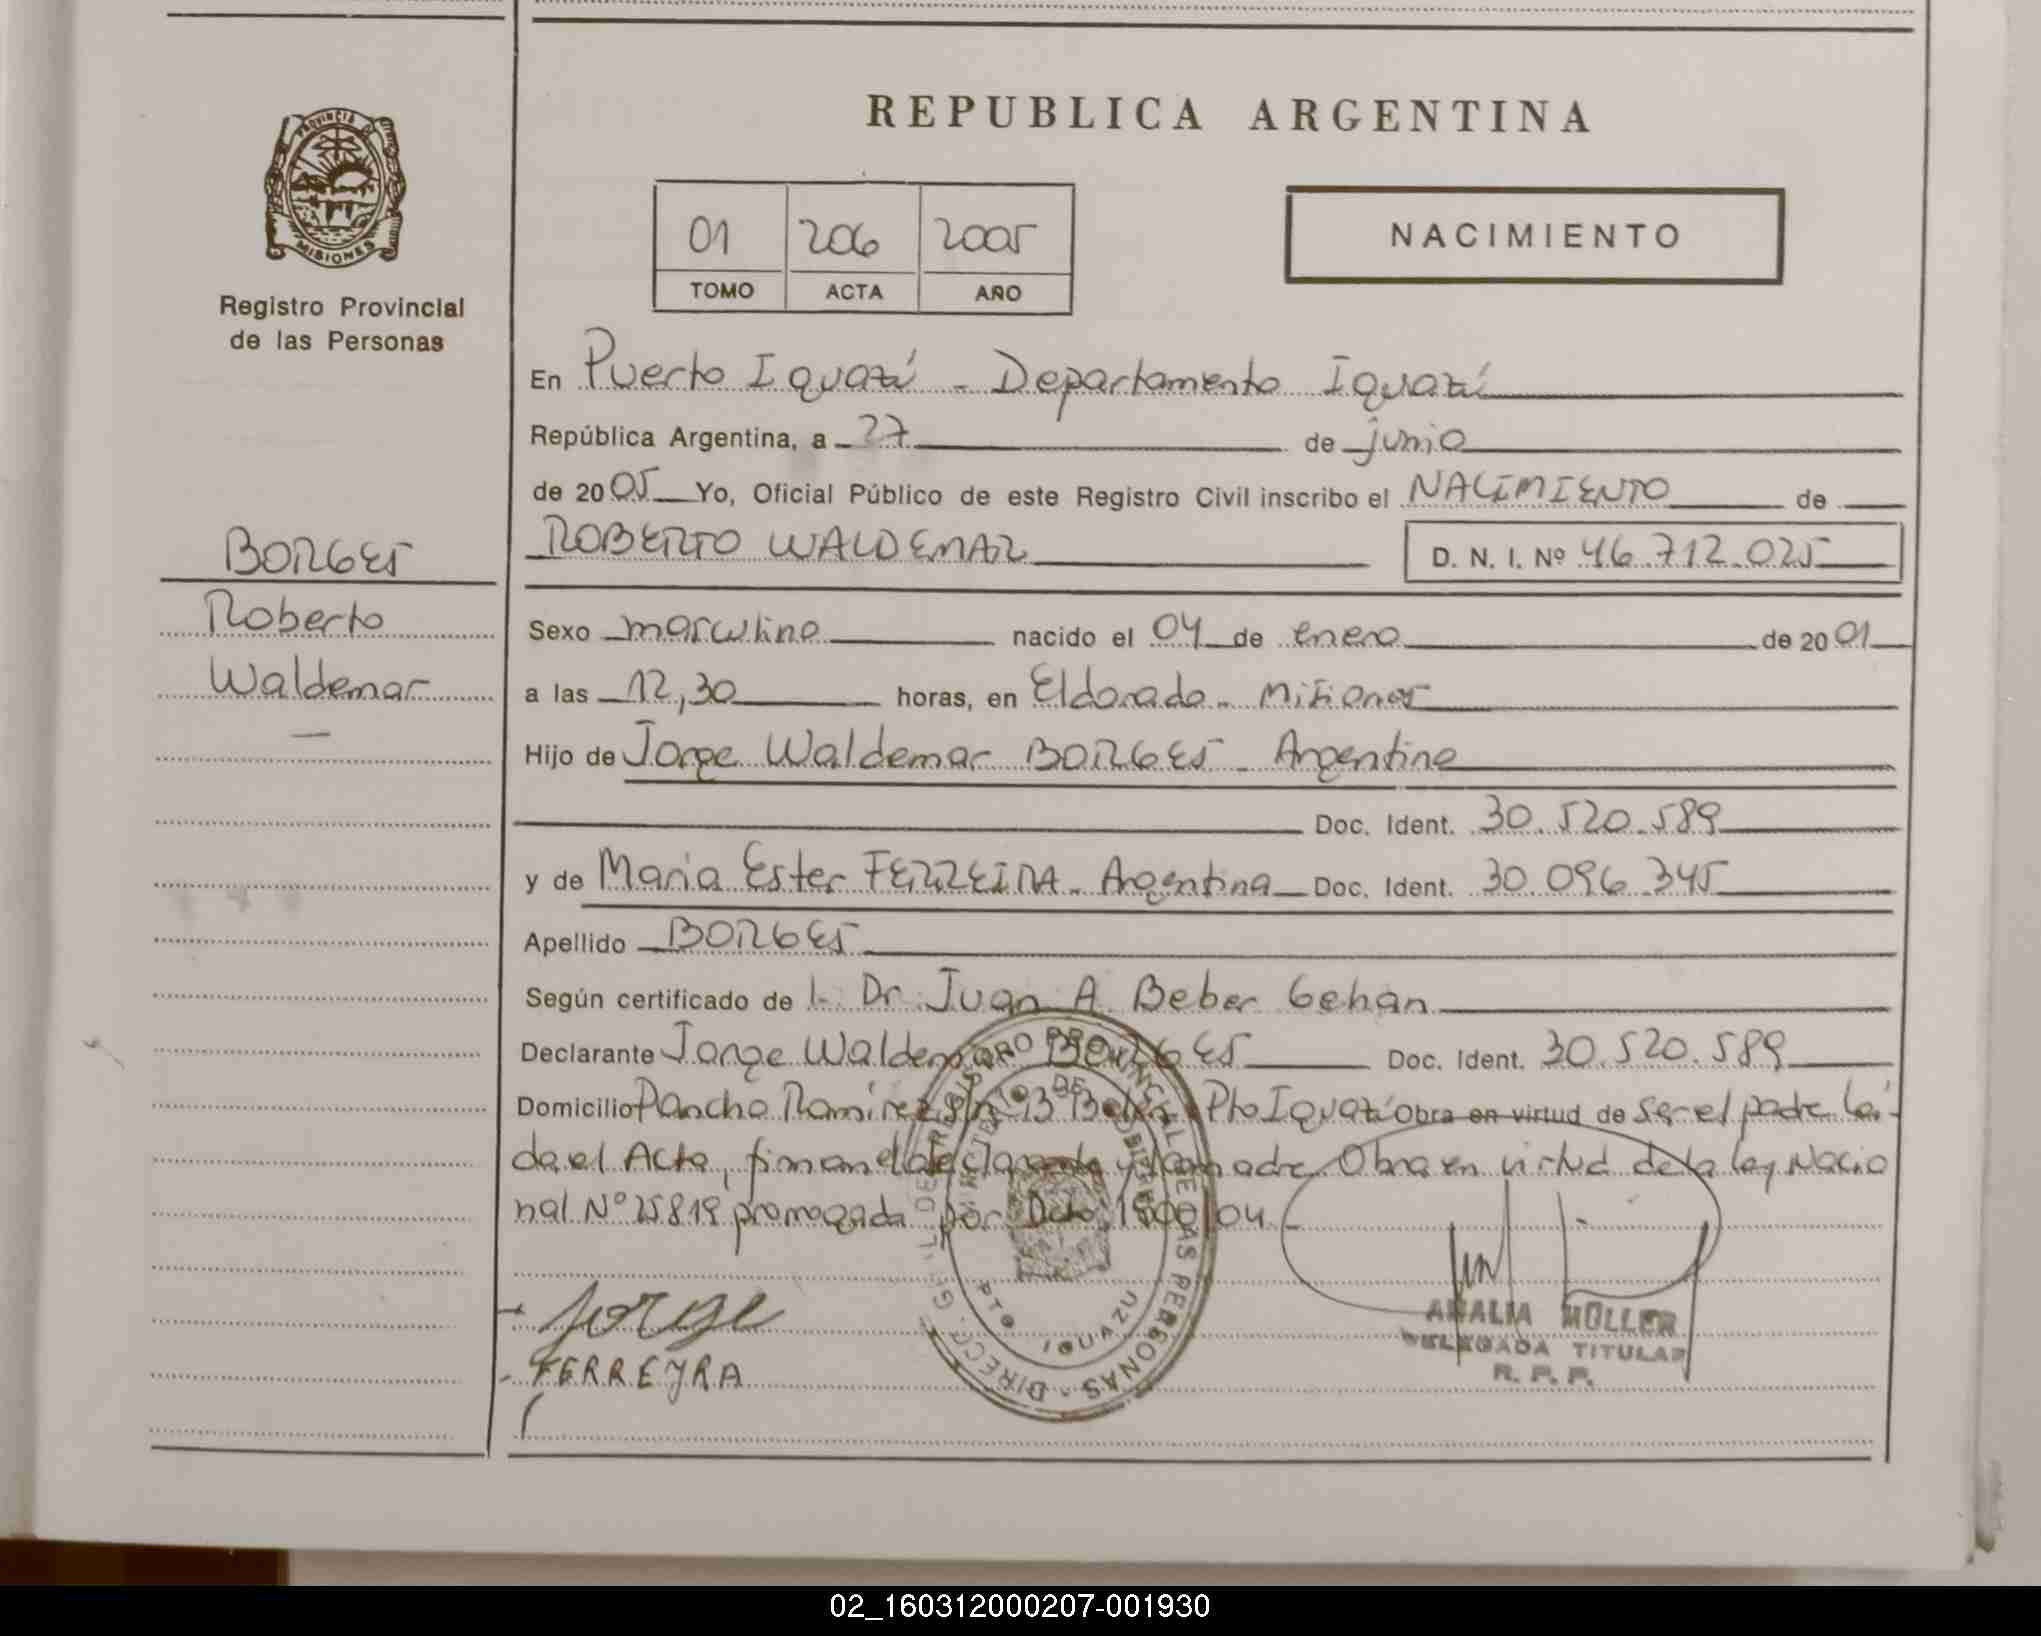 REPUBLICA ARGENTINA
PROVINCIA DE
MISIONES
Registro Provincial
de las Personas
01 206 2005
TOMO ACTA AÑO
NACIMIENTO
En Puerto Iguazú - Departamento Iguazú
República Argentina, a 27 de junio
de 2005 Yo, Oficial Público de este Registro Civil inscribo el NACIMIENTO de
BORGES
ROBERTO WALDEMAR D. N. I. Nº 46.712.025
Roberto
Sexo masculino nacido el 04 de enero de 2001
Waldemar
a las 12,30 horas, en Eldorado - Misiones
Hijo de Jorge Waldemar BORGES - Argentino
Doc. Ident. 30.520.589
y de Maria Ester FERREIRA - Argentina Doc. Ident. 30.096.345
Apellido BORGES
Según certificado de l. Dr. Juan A. Beber Gehan
Declarante Jorge Waldemar BORGES Doc. Ident. 30.520.589
Domicilio Pancho Ramírez s/n Pto Iguazú Obra en virtud de ser el padre leí-
da el Acta, firman el declarante y la madre. Obra en virtud de la ley Nacio
nal Nº 25819 prorrogada por Dcto. 1800/04 -
JORGE
FERREYRA
REGISTRO PROVINCIAL DE LAS PERSONAS - DIRECC. GEN.
PTO IGUAZU
ANALIA MÜLLER
DELEGADA TITULAR
R. P. P.
02_160312000207-001930